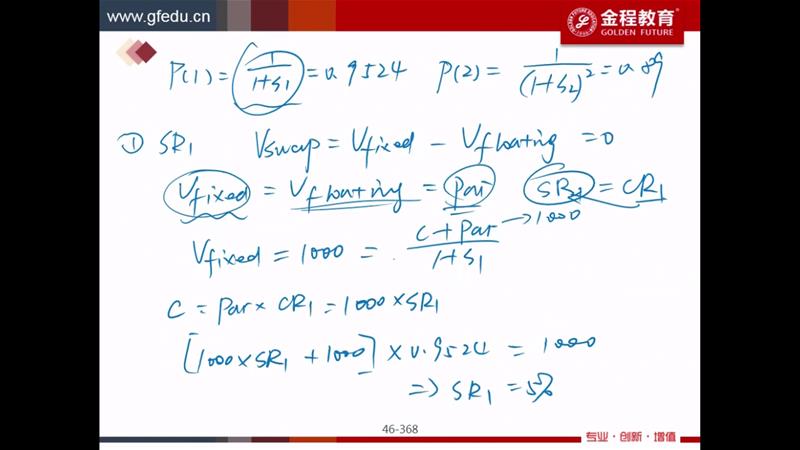 www.gfedu.cn
金程教育
GOLDEN FUTURE
P(1) = 1/(1+S1) = 0.9524 P(2) = 1/(1+S2)^2 = 0.89
① SR1 Vswap = Vfixed - Vfloating = 0
Vfixed = Vfloating = par SR1 = CR1
Vfixed = 1000 = (C + Par)/(1+S1) → 1000
C = Par × CR1 = 1000 × SR1
[1000 × SR1 + 1000] × 0.9524 = 1000
⇒ SR1 = 5%
46-368
专业·创新·增值